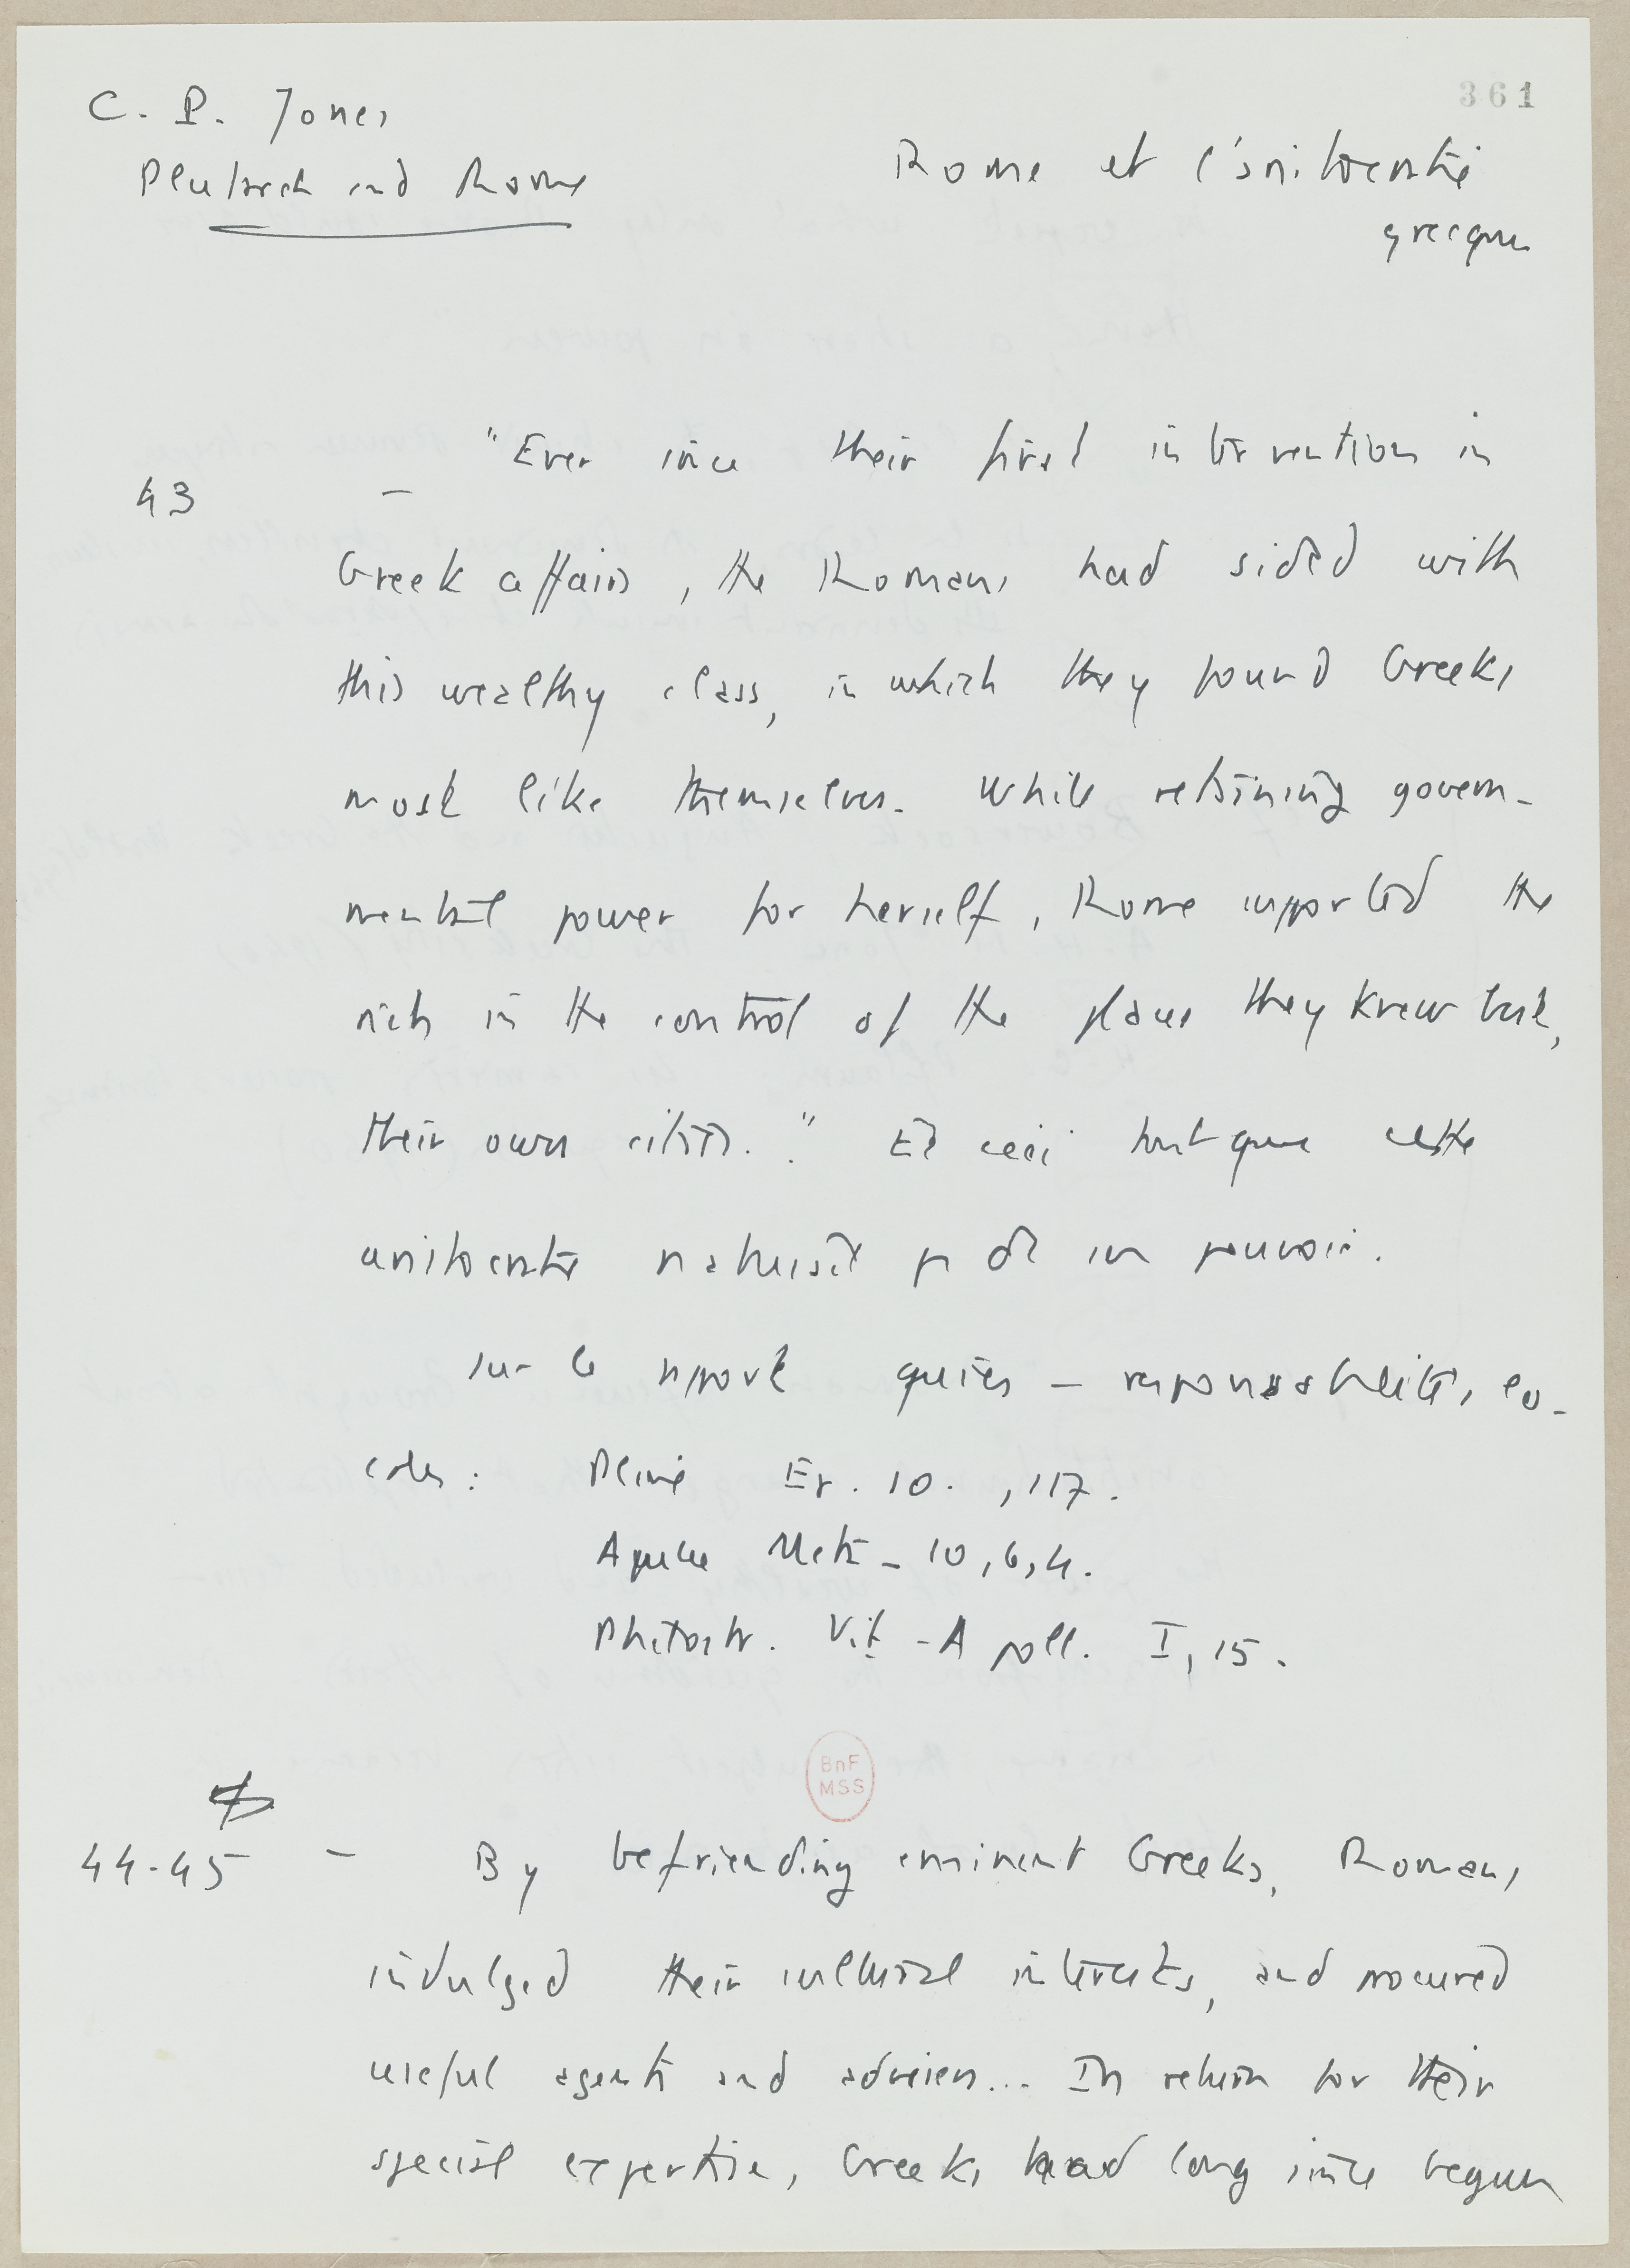 361
C. P. Jones
Plutarch and Rome
Rome et l'aristocratie
grecque
43 - "Ever since their first intervention in
Greek affairs, the Romans had sided with
this wealthy class, in which they found Greeks
most like themselves. While retaining govern-
mental power for herself, Rome supported the
rich in the control of the places they knew best,
their own cities." Et ceci tant que cette
aristocratie pas de son pouvoir.
Sur le rapport - responsabilités, lo-
cales : Pline Ep. 10. , 117.
Apulée Meta - 10, 6, 4.
Philostr. Vit - Apoll. I, 15.
BnF
MSS
44-45 - By befriending eminent Greeks, Romans
indulged their cultural interests, and procured
useful agents and advisers... In return for their
special expertise, Greeks had long since begun